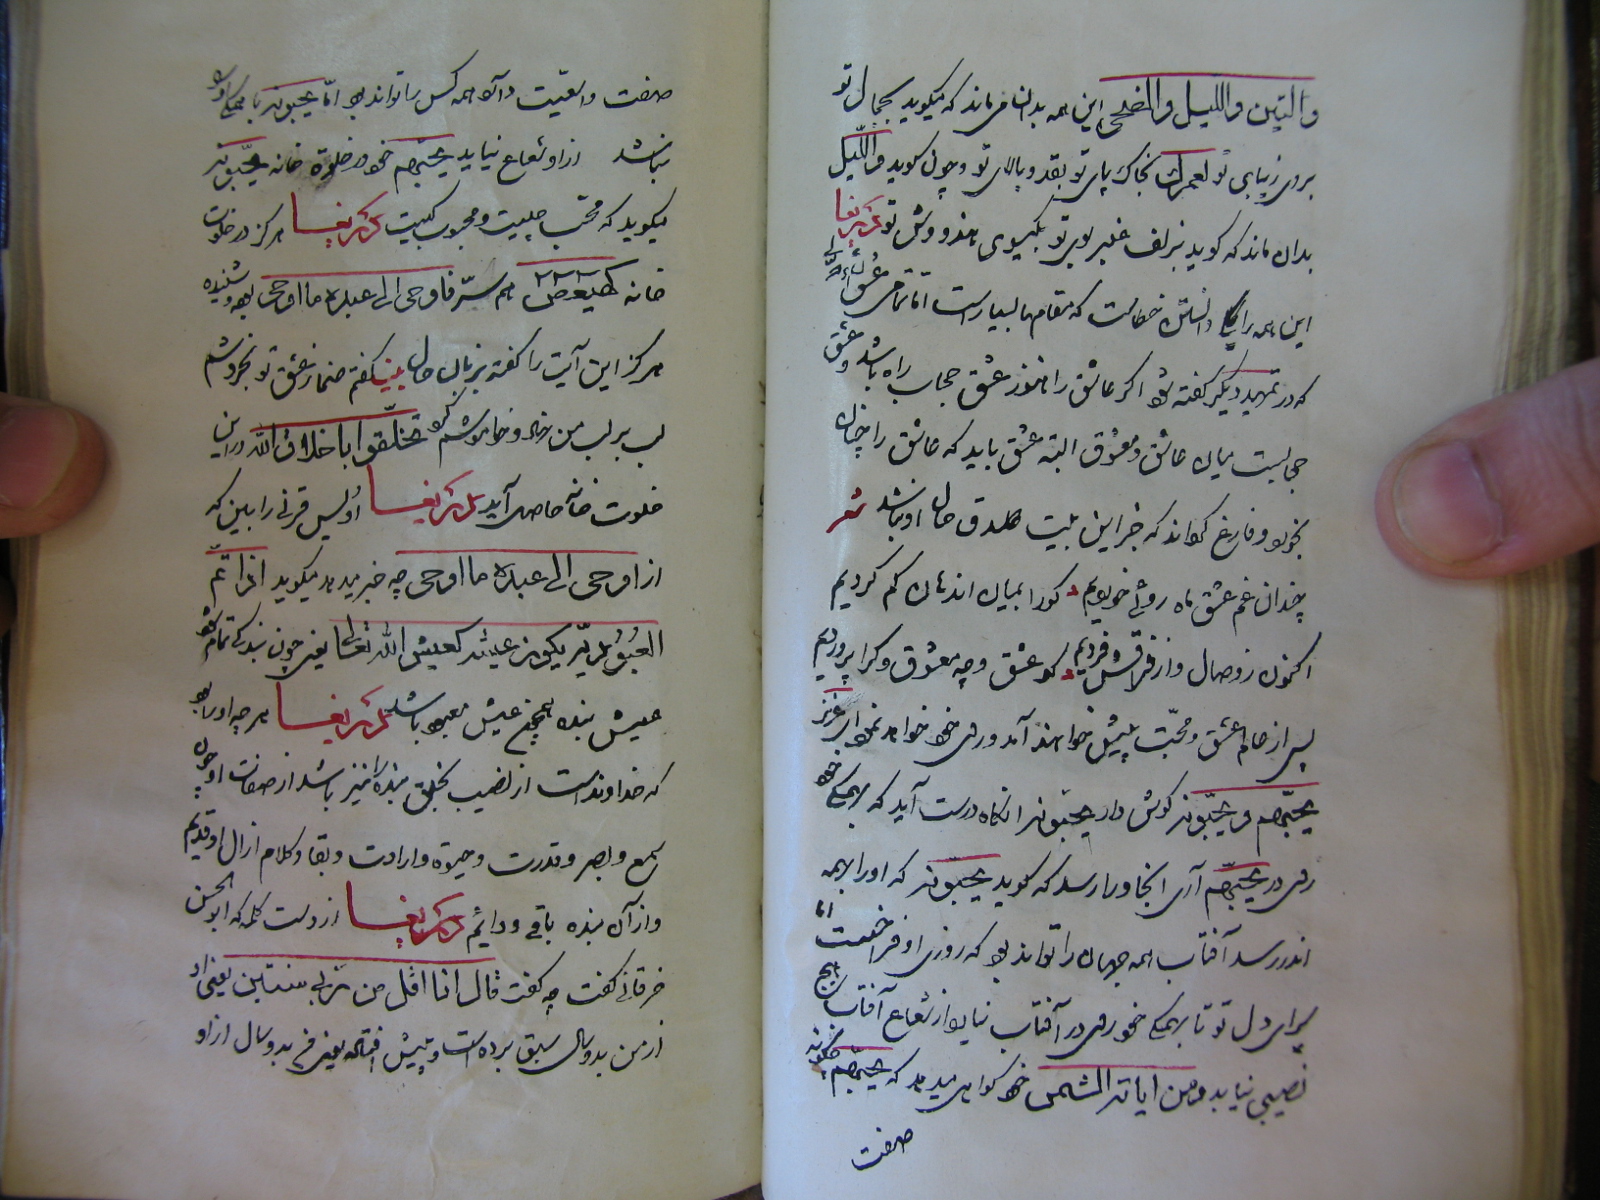 والتین واللیل والضحی این همه بدان می‌ماند که میکوید بجمال تو
بروی زیبای تو لعمرک بخاک پای تو بقد و بالای تو و چون کوید واللیل
بدان ماند که کوید بزلف عنبر بوی تو بکیسوی هندووش تو ای عزیز
این همه را دانستن خطاست که مقامها بسیار است اما تمامی عشق
که در تمهید دیکر کفته شود اکر عاشق را هنوز عشق حجاب راه باشد و عشق
حجابست میان عاشق و معشوق البته عشق باید که عاشق را چنان
بخورد و فارغ کرداند که جز این بیت صدق حال او نباشد شعر
چندان غم عشق ماه روئی خوردیم کورا بمیان اندهان کم کردیم
اکنون ز وصال و از فراقش فردیم کو عشق و چه معشوق و کرا پروردیم
پس از عالم عشق و محبت پیش خواهند آمد و روی خود خواهد نمود ای عزیز
یحبهم و یحبونه کوش دار یحبونه انکاه درست آید که بهمکی خود
روی در یحبهم آری انجا ویرا رسد که کوید یحبونه که او را بهمه
اندر رسد آفتاب همه جهان را تواند بود که روی او فراخست اما
سرای دل تو تا بهمکی خود روی در آفتاب نیارد از شعاع آفتاب هیچ
نصیبی نیابد ومن ایاته الشمس خود کواهی میدهد که یحبهم چکونه
صفت
صفت واقعیت دارد همه کس را تواند بود اما یحبونه تا بهمکی او را
نباشد از او شعاع نیابد یحبهم خود در خلوة خانه یحبونه
میکوید که محب چیست و محبوب کیست ای عزیز هرکز در خلوت
خانه کهیعص هم سر فاوحی الی عبده ما اوحی بوده و شنیده
هرکز این آیت را کفته بزبان حال بیت کفتم صنما ز عشق تو نخروشم
لب بر لب من نهاد و خاموشم کرد تخلقوا باخلاق الله در این
خلوت خانه حاصل آید ای عزیز اویس قرنی را بین که
از اوحی الی عبده ما اوحی چه خبر میدهد میکوید اذا تم
العبودیة یکون عیشه کعیش الله تعالی یعنی چون بندکی تمام شود
عیش بنده همچون عیش معبود باشد ای عزیز هر چه او را بود
که خداوند است از نصیب بخلق بنده را نیز باشد از صفات او چون
سمع و بصر و قدرت و حیوة و ارادت و بقا و کلام ازان او قدیم
و از آن بنده باقی و دائم ای عزیز از دست کله که ابو الحسن
خرقانی کفت چه کفت قال انا اقل من ربی سنتین یعنی او
از من بدو سال سبق برده است و پیش افتاده یعنی من بدو سال از او